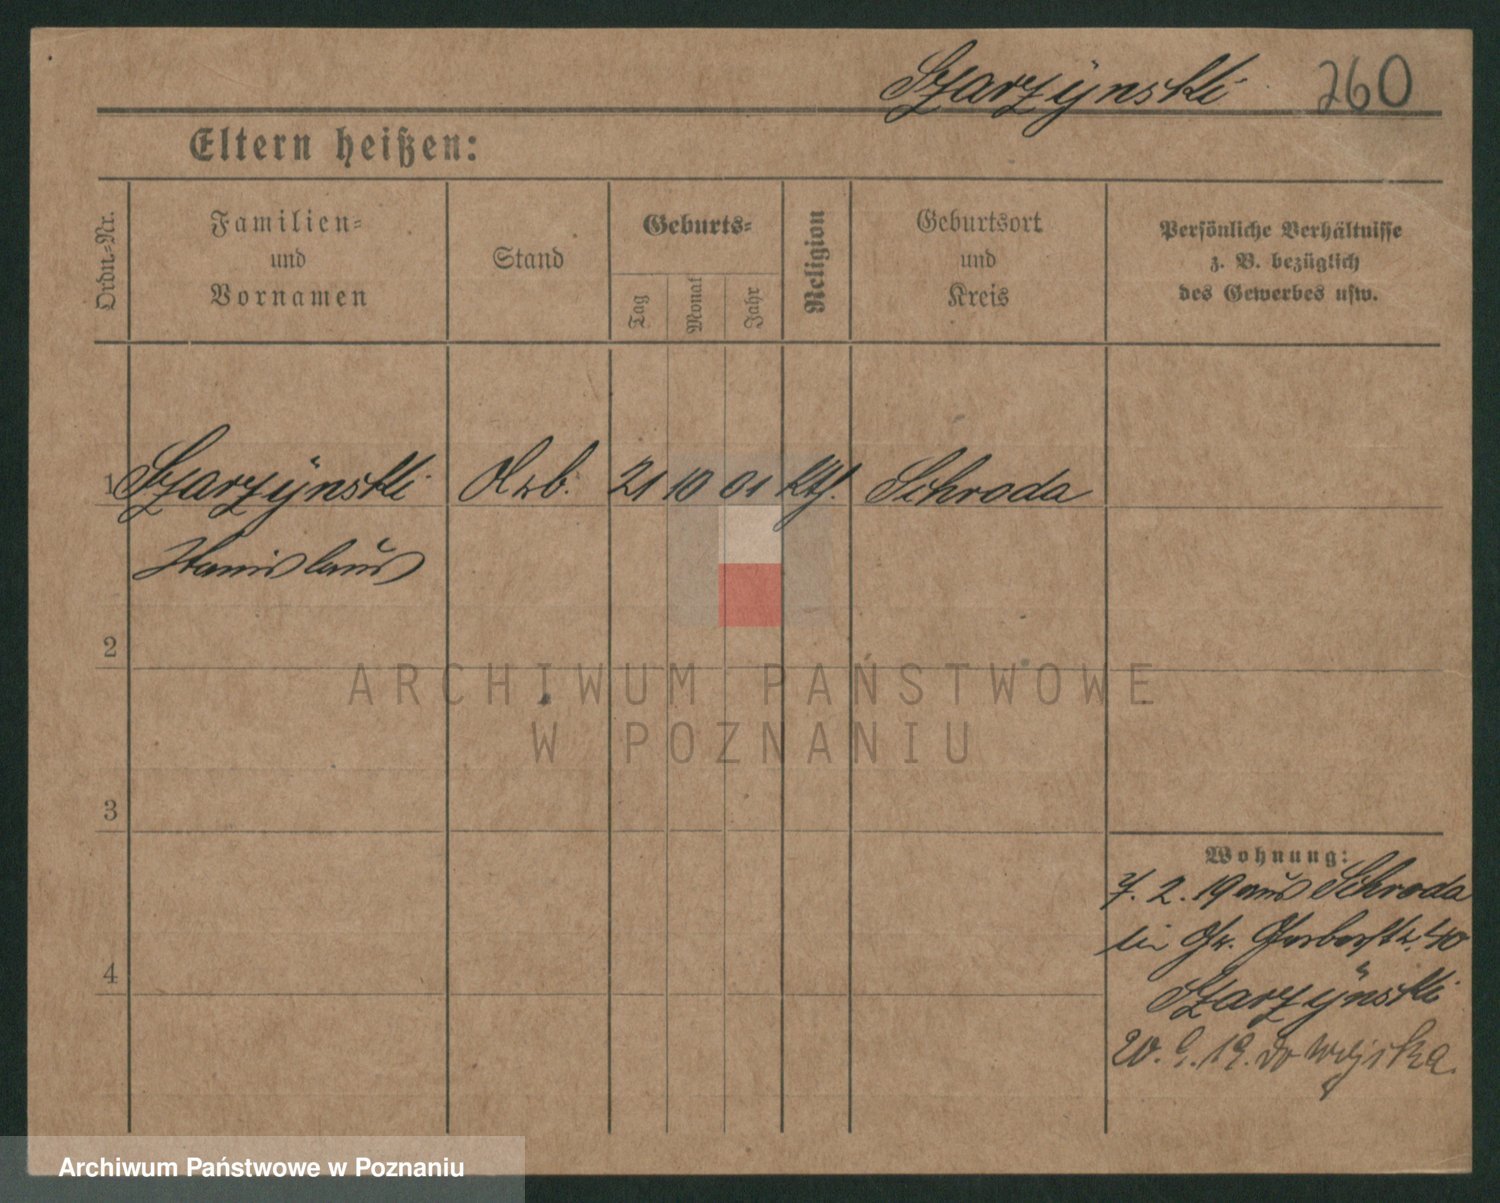 Szarzÿnski 260
Eltern heißen:
Ordn.-Nr.
Familien-
und
Vornamen
Stand
Geburts-
Tag
Monat
Jahr
Religion
Geburtsort
und
Kreis
Persönliche Verhältnisse
z. B. bezüglich
des Gewerbes usw.
1 Szarzÿnski Arb. 21 10 01 kth. Schroda
Stanislaus
2
ARCHIWUM PAŃSTWOWE
W POZNANIU
3
Wohnung:
7. 2. 19 aus Schroda
bei Gr. Gerberstr. 40
Szarzÿnski
4
20. 9. 19. do wojska.
Archiwum Państwowe w Poznaniu